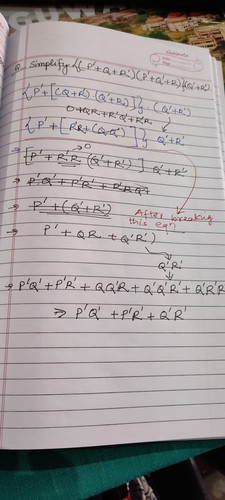 Q. Simplify {(P'+Q+R')(P'+Q'+R)}(Q'+R')
{P'+[(Q+R') (Q'+R)]} (Q'+R')
0+QR+R'Q'+R'R
{P'+[R'R+(Q.Q')]} Q'+R'
→ [P'+R'R (Q'+R')] Q'+R'
0
→ P'Q'+P'R'+R'RQ'
→ P'+(Q'+R')
After breaking this eqn
→ P'+QR+Q'R')
Q'R'
→ P'Q'+P'R'+QQ'R+Q'Q'R'+Q'R'R'
⇒ P'Q'+P'R'+Q'R'